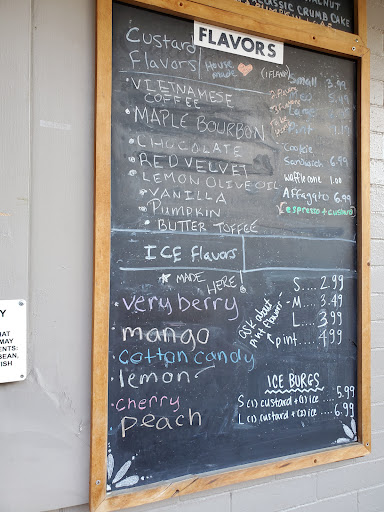 WALNUT
CLASSIC CRUMB CAKE
FLAVORS
Custard
Flavors
House
made
(1 FLAVOR)
Small 3.99
5.99
Pint
Cookie
Sandwich 6.99
waffle cone 1.00
Affagato 6.99
(espresso + custard)
• VIETNAMESE
COFFEE
• MAPLE BOURBON
• CHOCOLATE
• RED VELVET
• LEMON OLIVE OIL
• VANILLA
• PUMPKIN
• BUTTER TOFFEE
ICE Flavors
★ MADE HERE
• very berry
• mango
• cotton candy
• lemon
• cherry
• peach
ask about
Pint flavors
S .... 2.99
M .... 3.49
L .... 3.99
pint .... 4.99
ICE BURGS
S (1) custard + (1) ice .... 5.99
L (1) custard + (2) ice .... 6.99
Y
AT
MAY
ENTS:
BEAN,
ISH